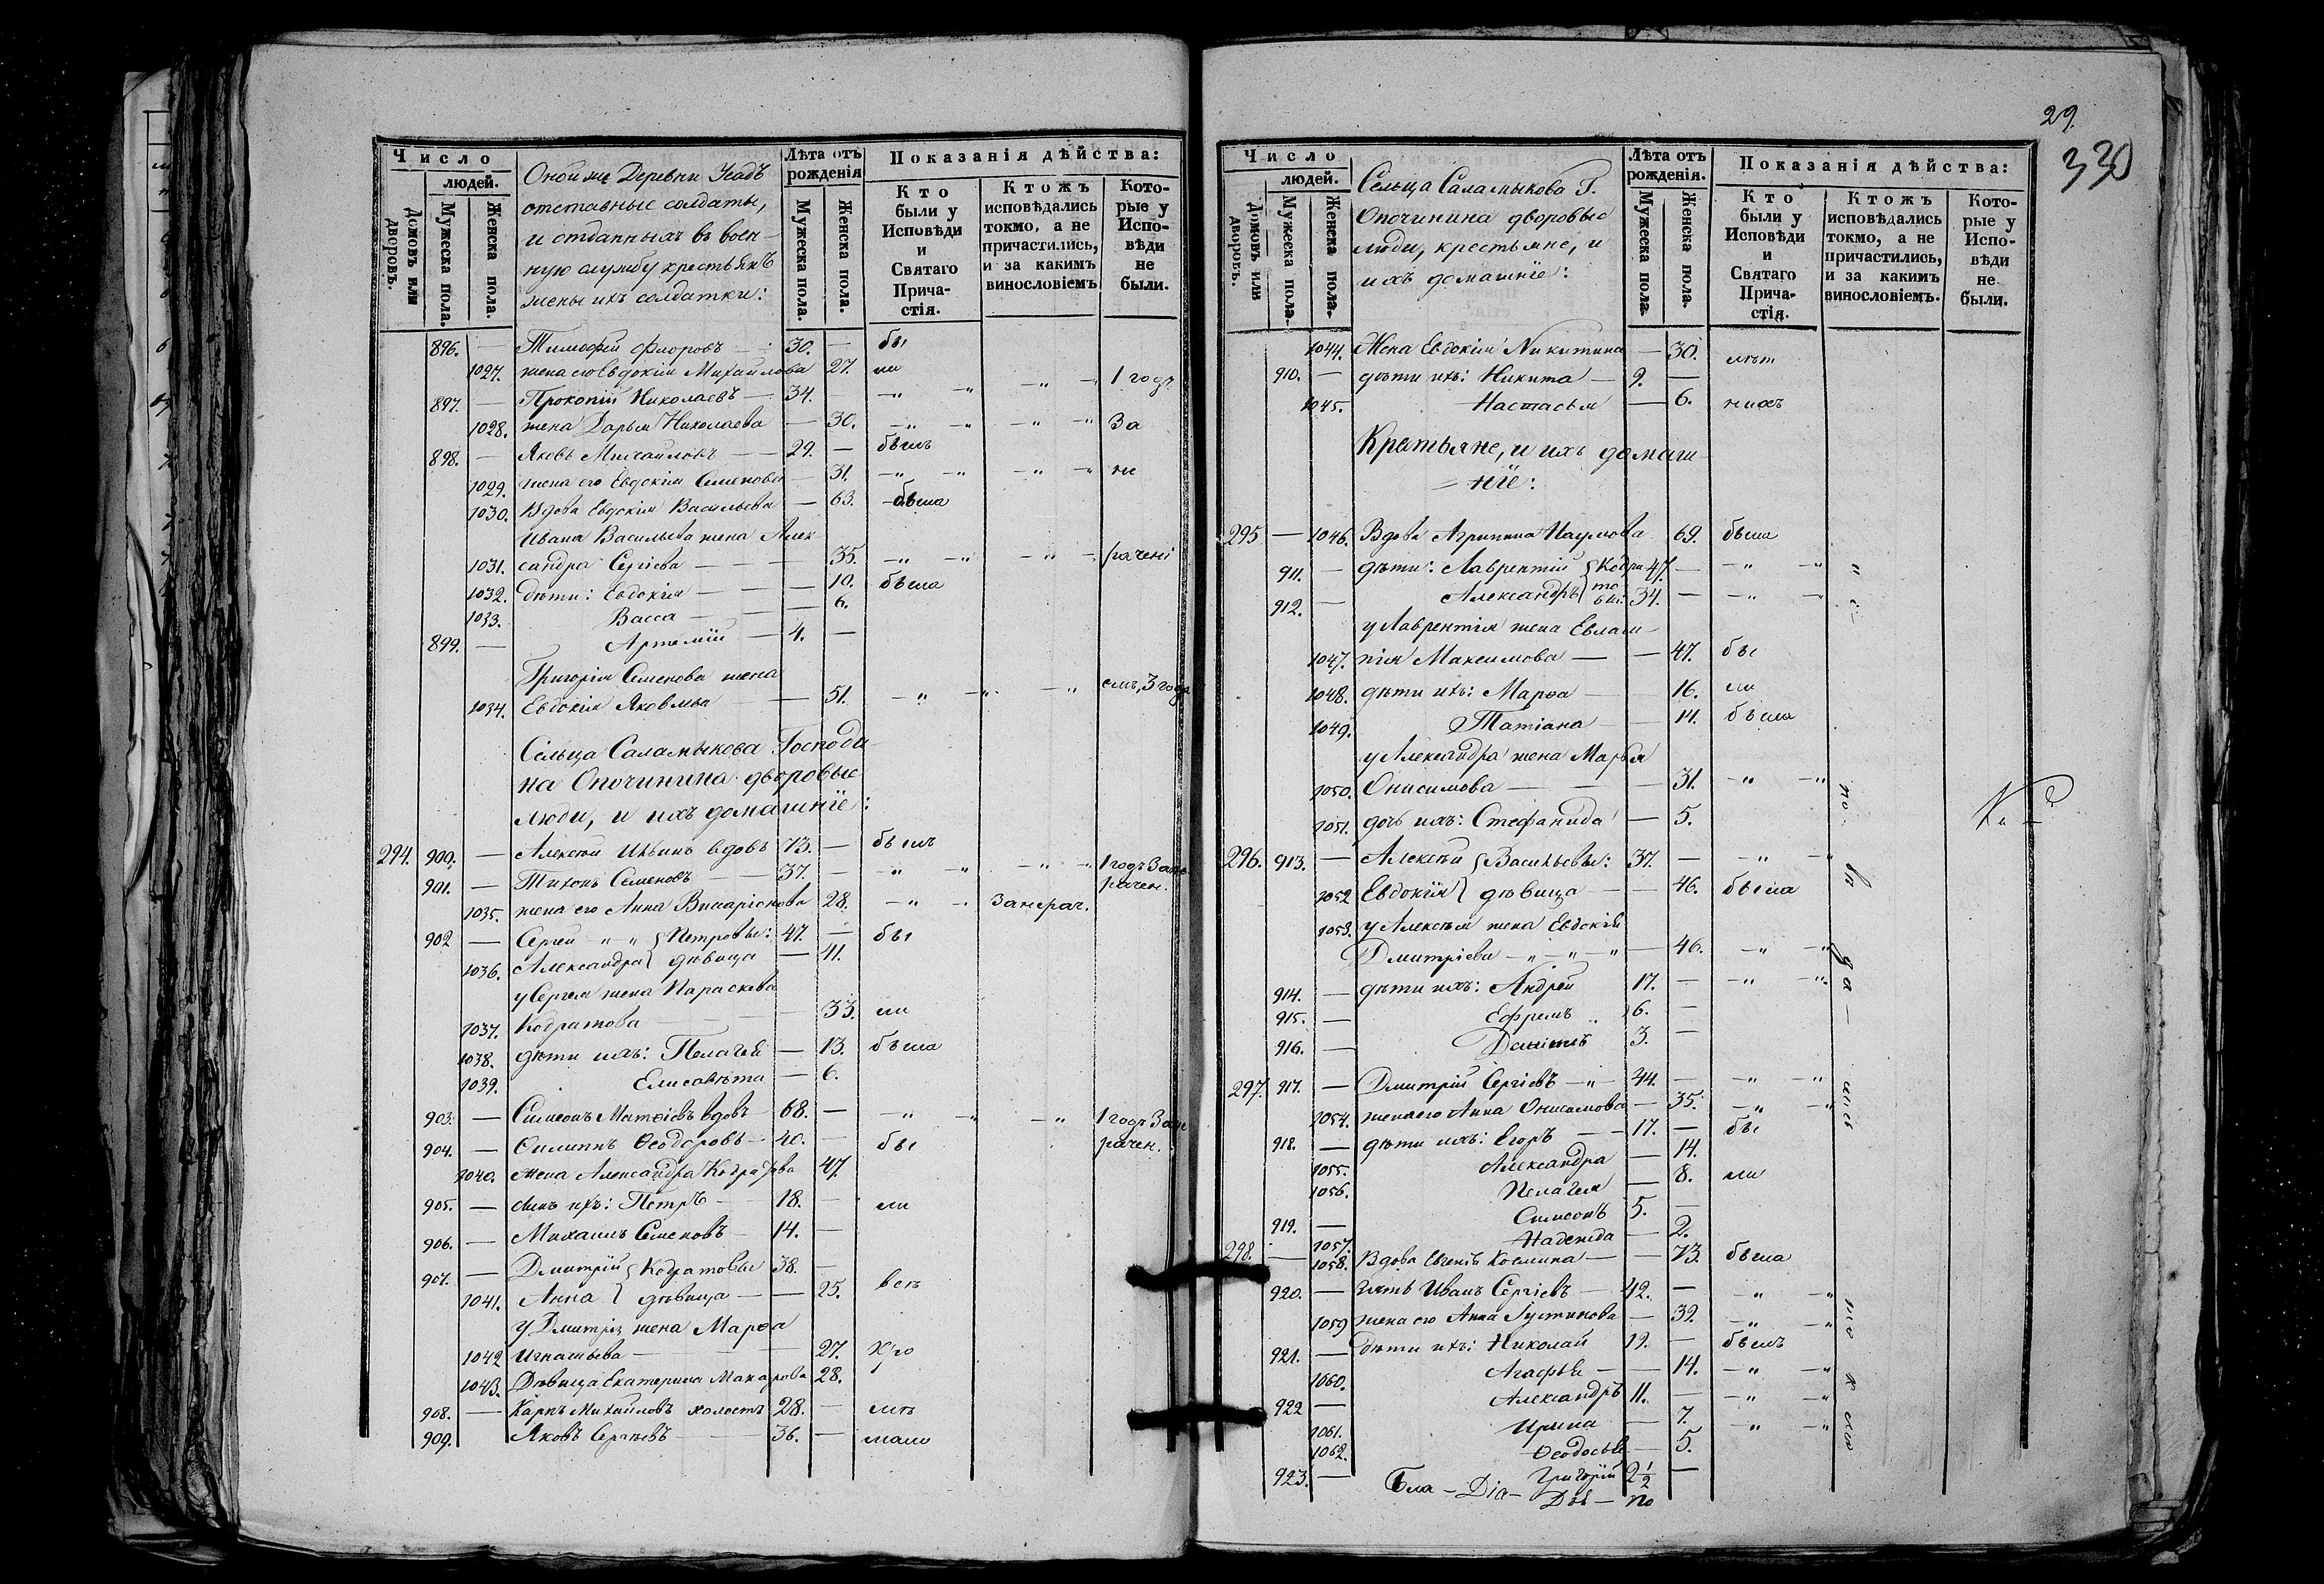 Число
людей.
Домовъ или дворовъ.
Мужеска пола.
Женска пола.
Оной же Деревни Усадъ
отставные солдаты,
и отданныхъ въ воен-
ную службу крестьянъ
жены ихъ солдатки:
Лѣта отъ рожденія
Мужеска пола.
Женска пола.
Показанія дѣйства:
Кто были у Исповѣди и Святаго Прича-стія.
Ктожъ исповѣдались токмо, а не причастились, и за какимъ винословіемъ
Кото-рые у Испо-вѣди не были.
896. — Тимофей Флоровъ — 30. — бы
1027. жена его Евдокія Михайлова 27. ли
897. — Прокопій Николаевъ — 34. — 1 годъ
1028. жена Дарья Николаева — 30. За
898. — Яковъ Михайловъ — 29. — былъ
1029. жена его Евдокія Семенова — 31. не
1030. Вдова Евдокія Васильева — 63. была
Ивана Васильева жена Алек
1031. сандра Сергіева — 35. рачені
1032. дѣти: Евдокія — 10. была
1033. Васса — 6.
899. — Артемій — 4. —
Григорія Семенова жена
1034. Евдокія Яковлева — 51. емъ, 3 года
Сельца Саламыкова Господи-
на Опочинина дворовые
люди, и ихъ домашніе:
294. 900. — Алексѣй Ильинъ вдовъ 73. — былъ
901. — Тихонъ Семеновъ — 37. — 1 годъ Зане рачен.
1035. жена его Анна Висаріонова 28. Занерач.
902 — Сергей Петровы: 47. — бы
1036. Александра дѣвица — 41.
у Сергея жена Параскева
1037. Кодратова — 33. ли
1038. дѣти ихъ: Пелагея — 13. была
1039. Елисавѣта — 6.
903. — Симеонъ Матѳіевъ вдовъ 68. — 1 годъ Зане
904. — Филиппъ Ѳеодоровъ — 40. — бы рачен.
1040. жена Александра Кодратова 47.
905. — сынъ ихъ: Петръ — 18. — ли
906. — Михаилъ Семеновъ — 14. —
907. — Дмитрій Кодратовы 38. —
1041. Анна дѣвица — 25. всѣ
у Дмитрія жена Марѳа
1042 Игнатьева — 27. Кро
1043. Дѣвица Екатерина Макарова 28.
908. — Карпъ Михайловъ холостъ 28. — мѣ
909. Яковъ Сергѣевъ — 36. — мало
29.
330
Число
людей.
Домовъ или дворовъ.
Мужеска пола.
Женска пола.
Сельца Саламыкова Г.
Опочинина дворовые
люди, крестьяне, и
ихъ домашніе:
Лѣта отъ рожденія.
Мужеска пола
Женска пола.
Показанія дѣйства:
Кто были у Исповѣди и Святаго Прича-стія.
Ктожъ исповѣдались токмо, а не причастились, и за какимъ винословіемъ.
Кото-рые у Испо-вѣди не были.
1044. Жена Евдокія Никитина — 30. лѣт
910. — дѣти ихъ: Никита — 9. —
1045. Настасья — 6. нихъ
Кретьяне, и ихъ домаш-
ніе:
295 — 1046. Вдова Агрипина Наумова 69. была
911. — дѣти: Лаврентій Кодра 47. —
912. — Александръ товы: 34. —
у Лаврентія жена Евлам-
1047. пія Максимова — 47. бы
1048. дѣти ихъ: Марѳа — 16. ли
1049. Татіана — 14. была
у Александра жена Марья
1050. Онисимова — 31.
1051. дочь ихъ: Стефанида — 5.
296. 913. — Алексѣй Васильевы: 37. —
1052 Евдокія дѣвица — 46. была
1053. у Алексѣя жена Евдокія
Дмитріева — 46.
914. — дѣти ихъ: Андрей 17. —
915. — Ефремъ 6. —
916. — Даніилъ 3. —
297. 917. — Дмитрій Сергіевъ 44. —
1054. жена его Анна Онисимова — 35.
918. — дѣти ихъ: Егоръ — 17. — бы
1055. Александра — 14.
1056. Пелагея — 8. ли
919. — Симеонъ 5. —
1057. Надежда — 2.
298. — 1058. Вдова Евгенія Космина — 73. была
920. — зять Иванъ Сергіевъ — 42. —
1059 жена его Анна Іустинова — 39.
921. — дѣти ихъ: Николай 19. — былъ
1060. Агафья — 14.
922 — Александръ 11. —
1061. Ирина — 7.
1062. Ѳеодосья — 5.
923. — Григорій 2½ —
Бла — Діа — Дѣв — по